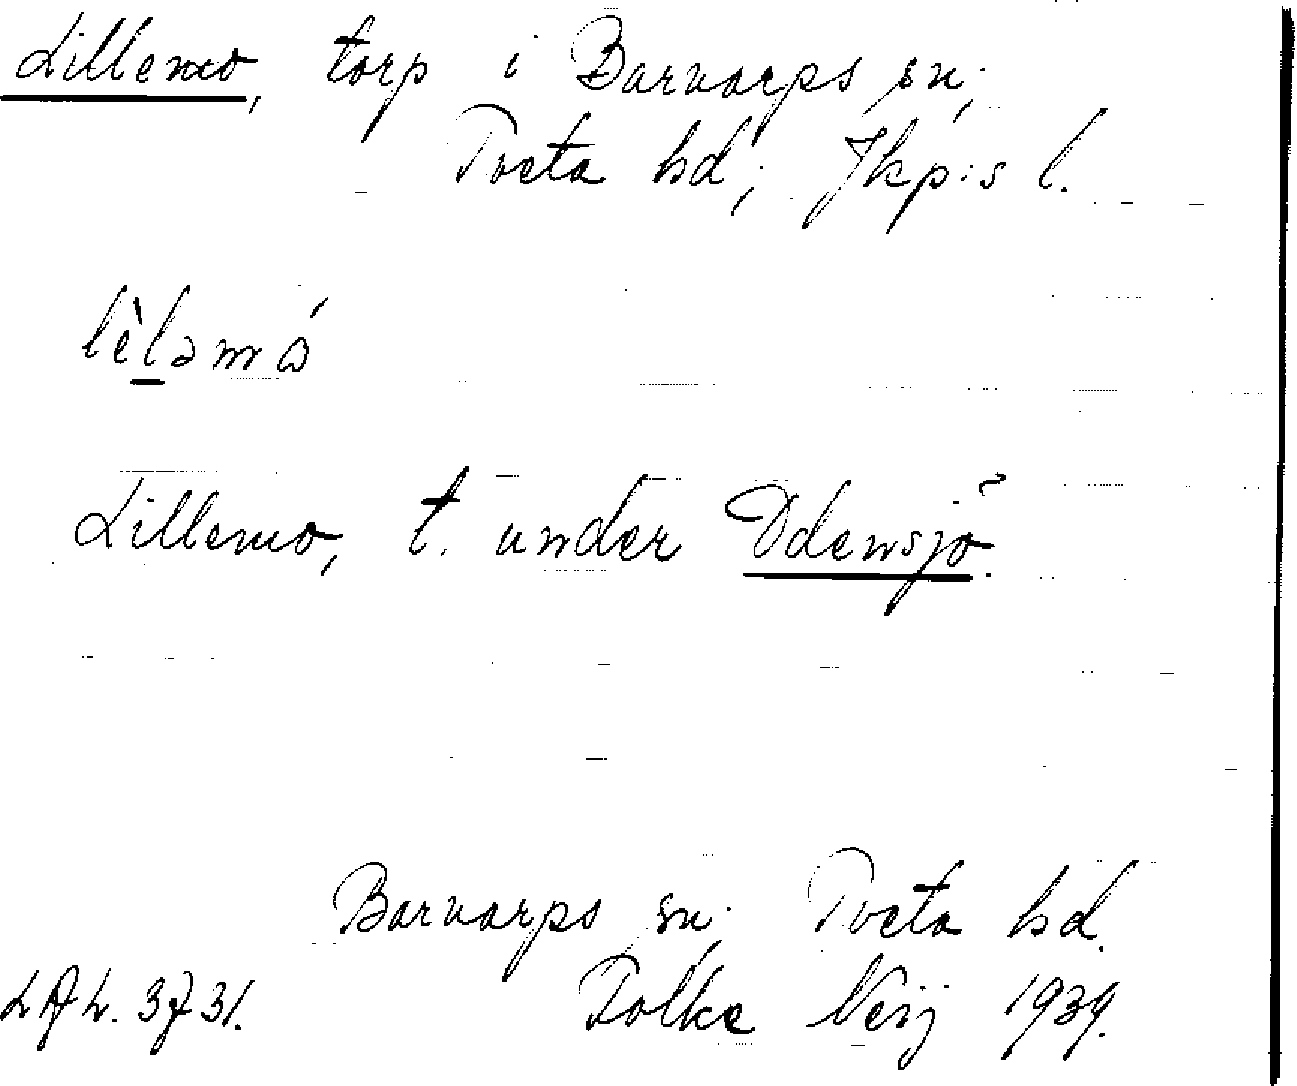 Lillemo, torp i Barnarps sn,
Tveta hd, Jkp:s l.
lèlamó
Lillemo, t. under Odensjö.
Barnarps sn, Tveta hd.
Folke Neij 1939.